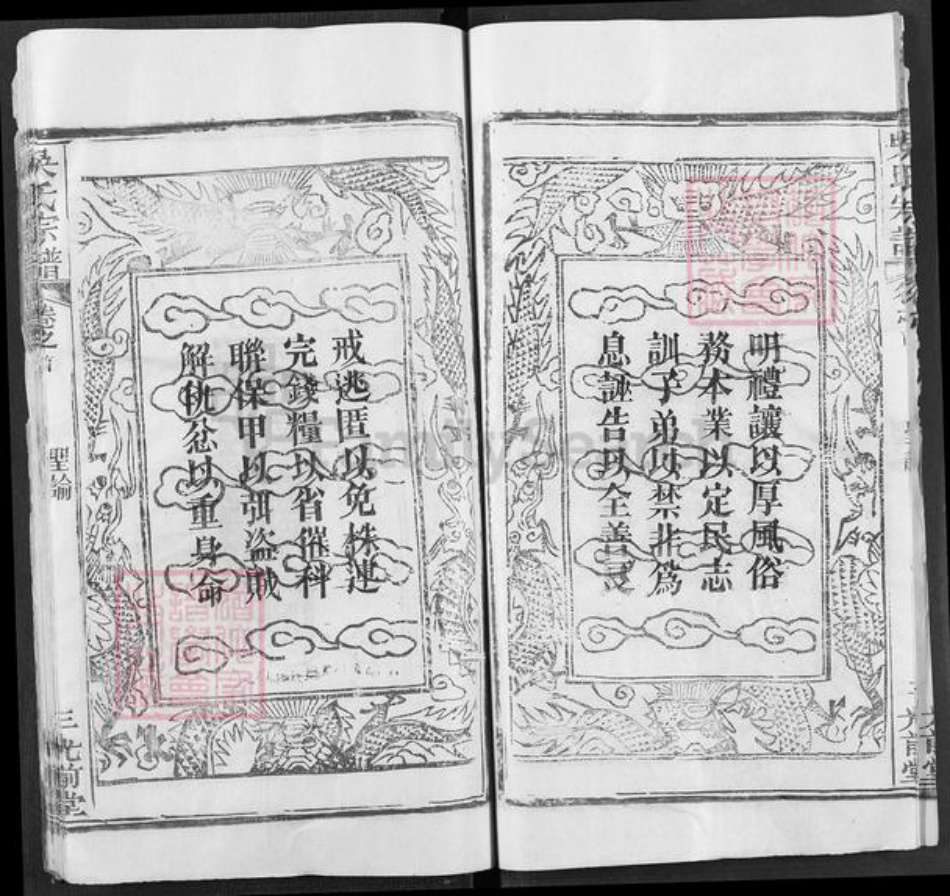 明禮讓以厚風俗
務本業以定民志
訓子弟以禁非為
息誣告以全善良
戒逃匿以免株連
完錢糧以省催科
聯保甲以弭盜賊
解讐忿以重身命
吳氏宗譜
卷之首
聖諭
三
光前堂